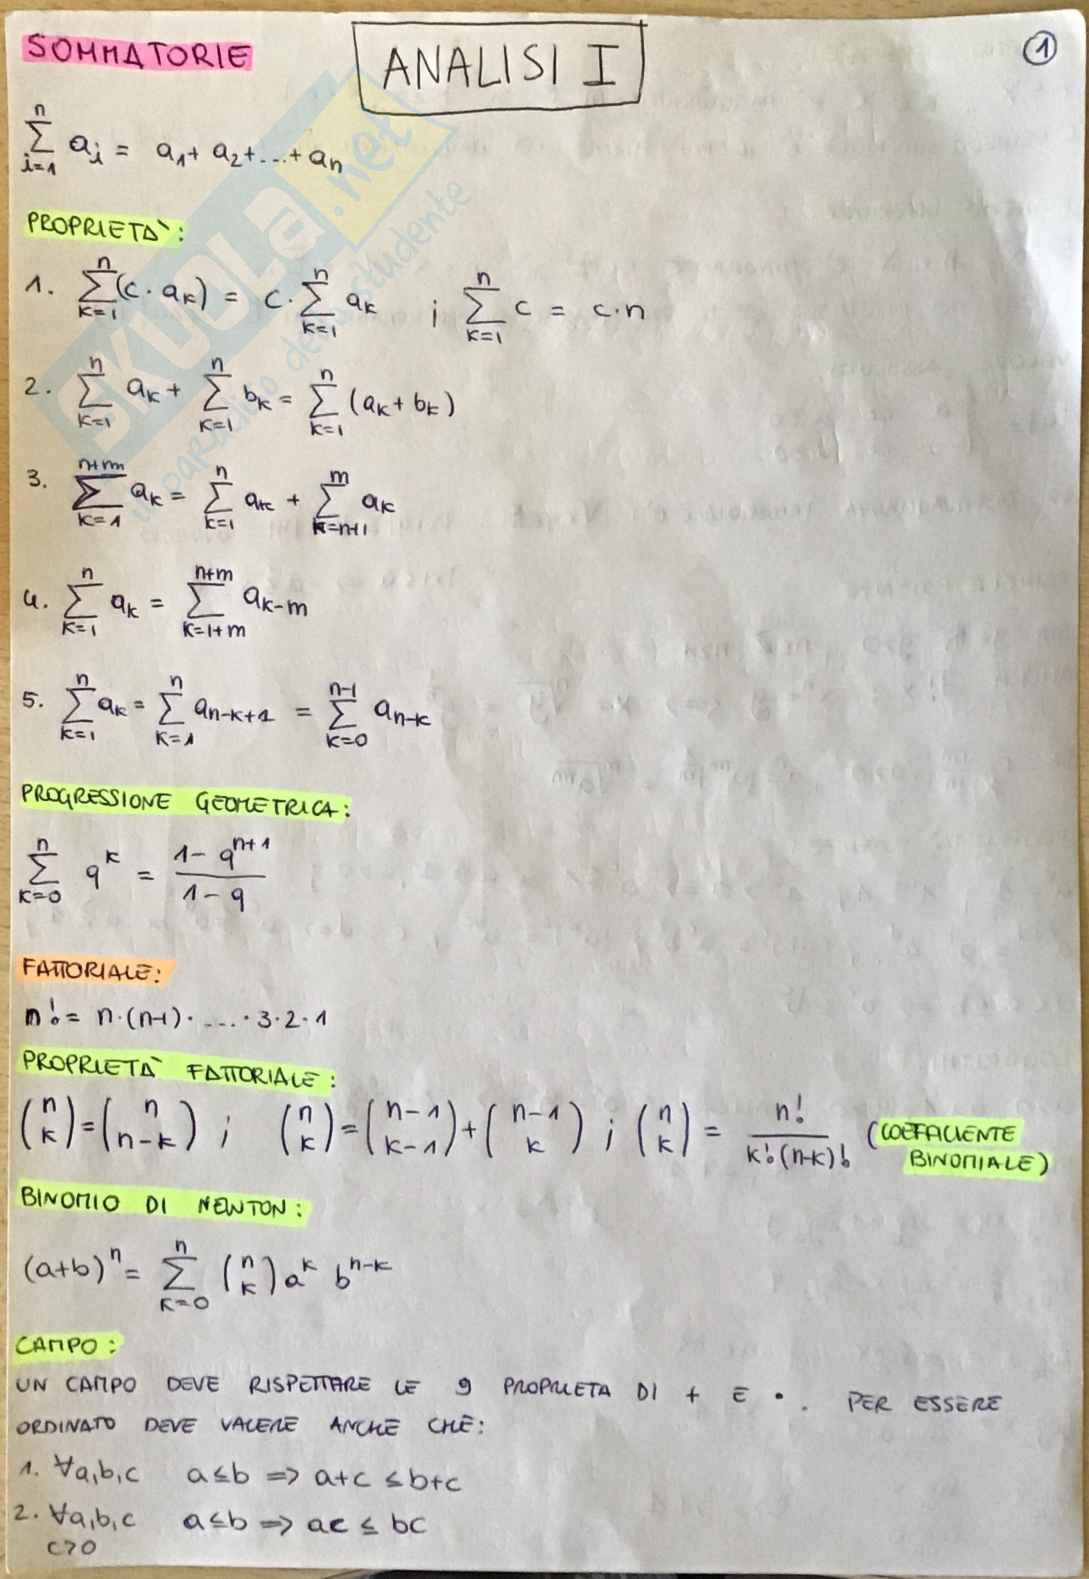 SOMMATORIE
ANALISI I
1
n
∑ aᵢ = a₁ + a₂ + ... + aₙ
i=1
PROPRIETÀ:
1. ∑ₖ₌₁ⁿ (c · aₖ) = c · ∑ₖ₌₁ⁿ aₖ ; ∑ₖ₌₁ⁿ c = c·n
2. ∑ₖ₌₁ⁿ aₖ + ∑ₖ₌₁ⁿ bₖ = ∑ₖ₌₁ⁿ (aₖ + bₖ)
3. ∑ₖ₌₁ⁿ⁺ᵐ aₖ = ∑ₖ₌₁ⁿ aₖ + ∑ₖ₌ₙ₊₁ᵐ aₖ
4. ∑ₖ₌₁ⁿ aₖ = ∑ₖ₌₁₊ₘⁿ⁺ᵐ aₖ₋ₘ
5. ∑ₖ₌₁ⁿ aₖ = ∑ₖ₌₁ⁿ aₙ₋ₖ₊₁ = ∑ₖ₌₀ⁿ⁻¹ aₙ₋ₖ
PROGRESSIONE GEOMETRICA:
∑ₖ₌₀ⁿ qᵏ = (1 - qⁿ⁺¹) / (1 - q)
FATTORIALE:
n! = n·(n-1)· .... ·3·2·1
PROPRIETÀ FATTORIALE:
(n k) = (n n-k) ; (n k) = (n-1 k-1) + (n-1 k) ; (n k) = n! / k!(n-k)! (COEFFICIENTE
BINOMIALE)
BINOMIO DI NEWTON:
(a+b)ⁿ = ∑ₖ₌₀ⁿ (n k) aᵏ bⁿ⁻ᵏ
CAMPO:
UN CAMPO DEVE RISPETTARE LE 9 PROPRIETA DI + E • . PER ESSERE
ORDINATO DEVE VALERE ANCHE CHE:
1. ∀a,b,c a≤b => a+c ≤ b+c
2. ∀a,b,c a≤b => ac ≤ bc
c>0
SKUOLA.net
il paradiso dello studente